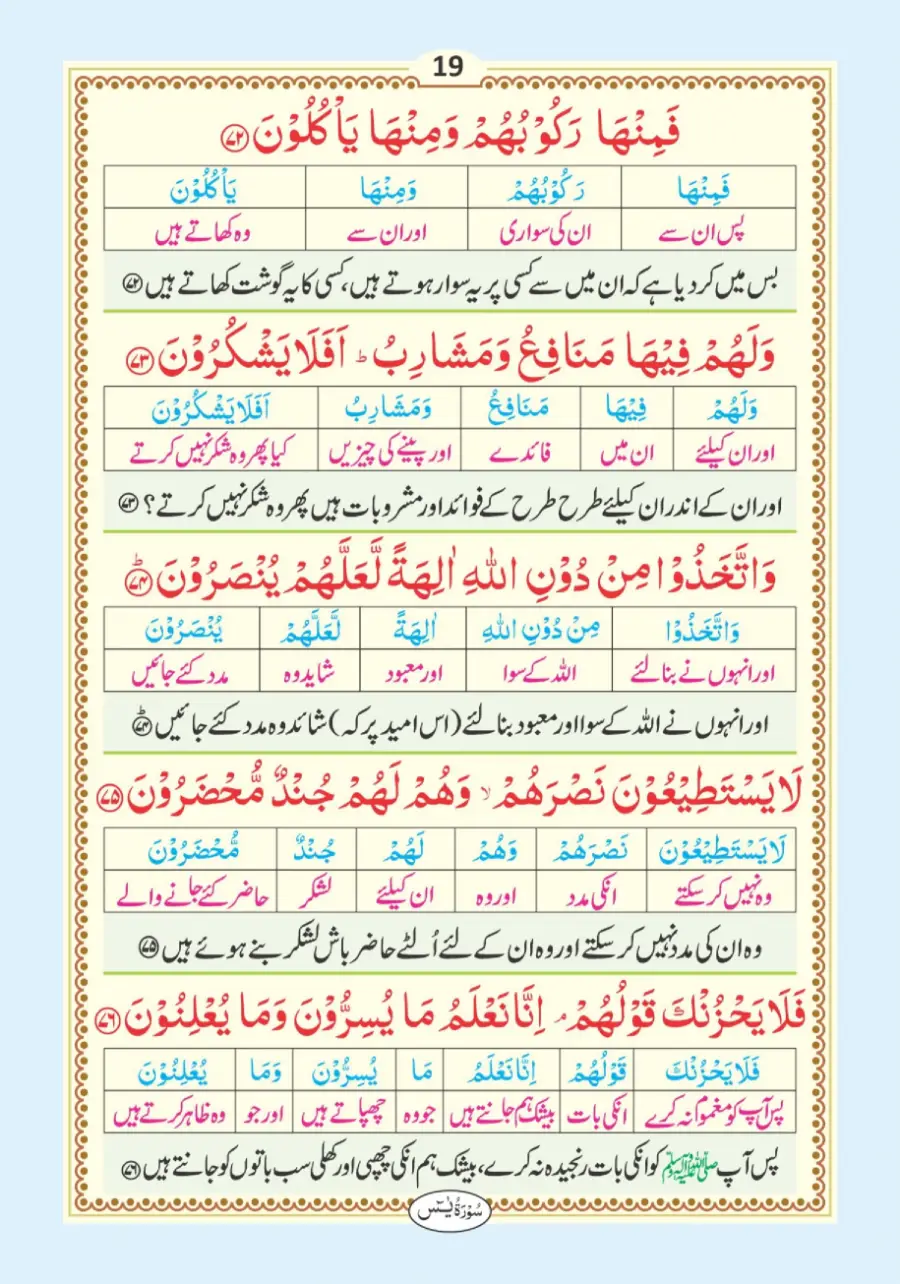 19
فَمِنْهَا رَكُوْبُهُمْ وَمِنْهَا يَاْكُلُوْنَ ﴿۷۲﴾
فَمِنْهَا رَكُوْبُهُمْ وَمِنْهَا يَاْكُلُوْنَ
پس ان سے ان کی سواری اور ان سے وہ کھاتے ہیں
بس میں کر دیا ہے کہ ان میں سے کسی پر یہ سوار ہوتے ہیں، کسی کا یہ گوشت کھاتے ہیں ﴿۷۲﴾
وَلَهُمْ فِيْهَا مَنَافِعُ وَمَشَارِبُ ؕ اَفَلَا يَشْكُرُوْنَ ﴿۷۳﴾
وَلَهُمْ فِيْهَا مَنَافِعُ وَمَشَارِبُ اَفَلَا يَشْكُرُوْنَ
اور ان کیلئے ان میں فائدے اور پینے کی چیزیں کیا پھر وہ شکر نہیں کرتے
اور ان کے اندر ان کیلئے طرح طرح کے فوائد اور مشروبات ہیں پھر وہ شکر نہیں کرتے؟ ﴿۷۳﴾
وَاتَّخَذُوْا مِنْ دُوْنِ اللهِ اٰلِهَةً لَّعَلَّهُمْ يُنْصَرُوْنَ ﴿۷۴﴾ؕ
وَاتَّخَذُوْا مِنْ دُوْنِ اللهِ اٰلِهَةً لَّعَلَّهُمْ يُنْصَرُوْنَ
اور انہوں نے بنا لئے اللہ کے سوا اور معبود شاید وہ مدد کئے جائیں
اور انہوں نے اللہ کے سوا اور معبود بنا لئے (اس امید پر کہ) شائد وہ مدد کئے جائیں ﴿۷۴﴾ؕ
لَا يَسْتَطِيْعُوْنَ نَصْرَهُمْ ۙ وَهُمْ لَهُمْ جُنْدٌ مُّحْضَرُوْنَ ﴿۷۵﴾
لَا يَسْتَطِيْعُوْنَ نَصْرَهُمْ وَهُمْ لَهُمْ جُنْدٌ مُّحْضَرُوْنَ
وہ نہیں کر سکتے انکی مدد اور وہ ان کیلئے لشکر حاضر کئے جانے والے
وہ ان کی مدد نہیں کر سکتے اور وہ ان کے لئے اُلٹے حاضر باش لشکر بنے ہوئے ہیں ﴿۷۵﴾
فَلَا يَحْزُنْكَ قَوْلُهُمْ ۘ اِنَّا نَعْلَمُ مَا يُسِرُّوْنَ وَمَا يُعْلِنُوْنَ ﴿۷۶﴾
فَلَا يَحْزُنْكَ قَوْلُهُمْ اِنَّا نَعْلَمُ مَا يُسِرُّوْنَ وَمَا يُعْلِنُوْنَ
پس آپ کو مغموم نہ کرے انکی بات بیشک ہم جانتے ہیں جو وہ چھپاتے ہیں اور جو وہ ظاہر کرتے ہیں
پس آپ ﷺ کو انکی بات رنجیدہ نہ کرے، بیشک ہم انکی چھپی اور کھلی سب باتوں کو جانتے ہیں ﴿۷۶﴾
سُوْرَةُ يٰسٓ